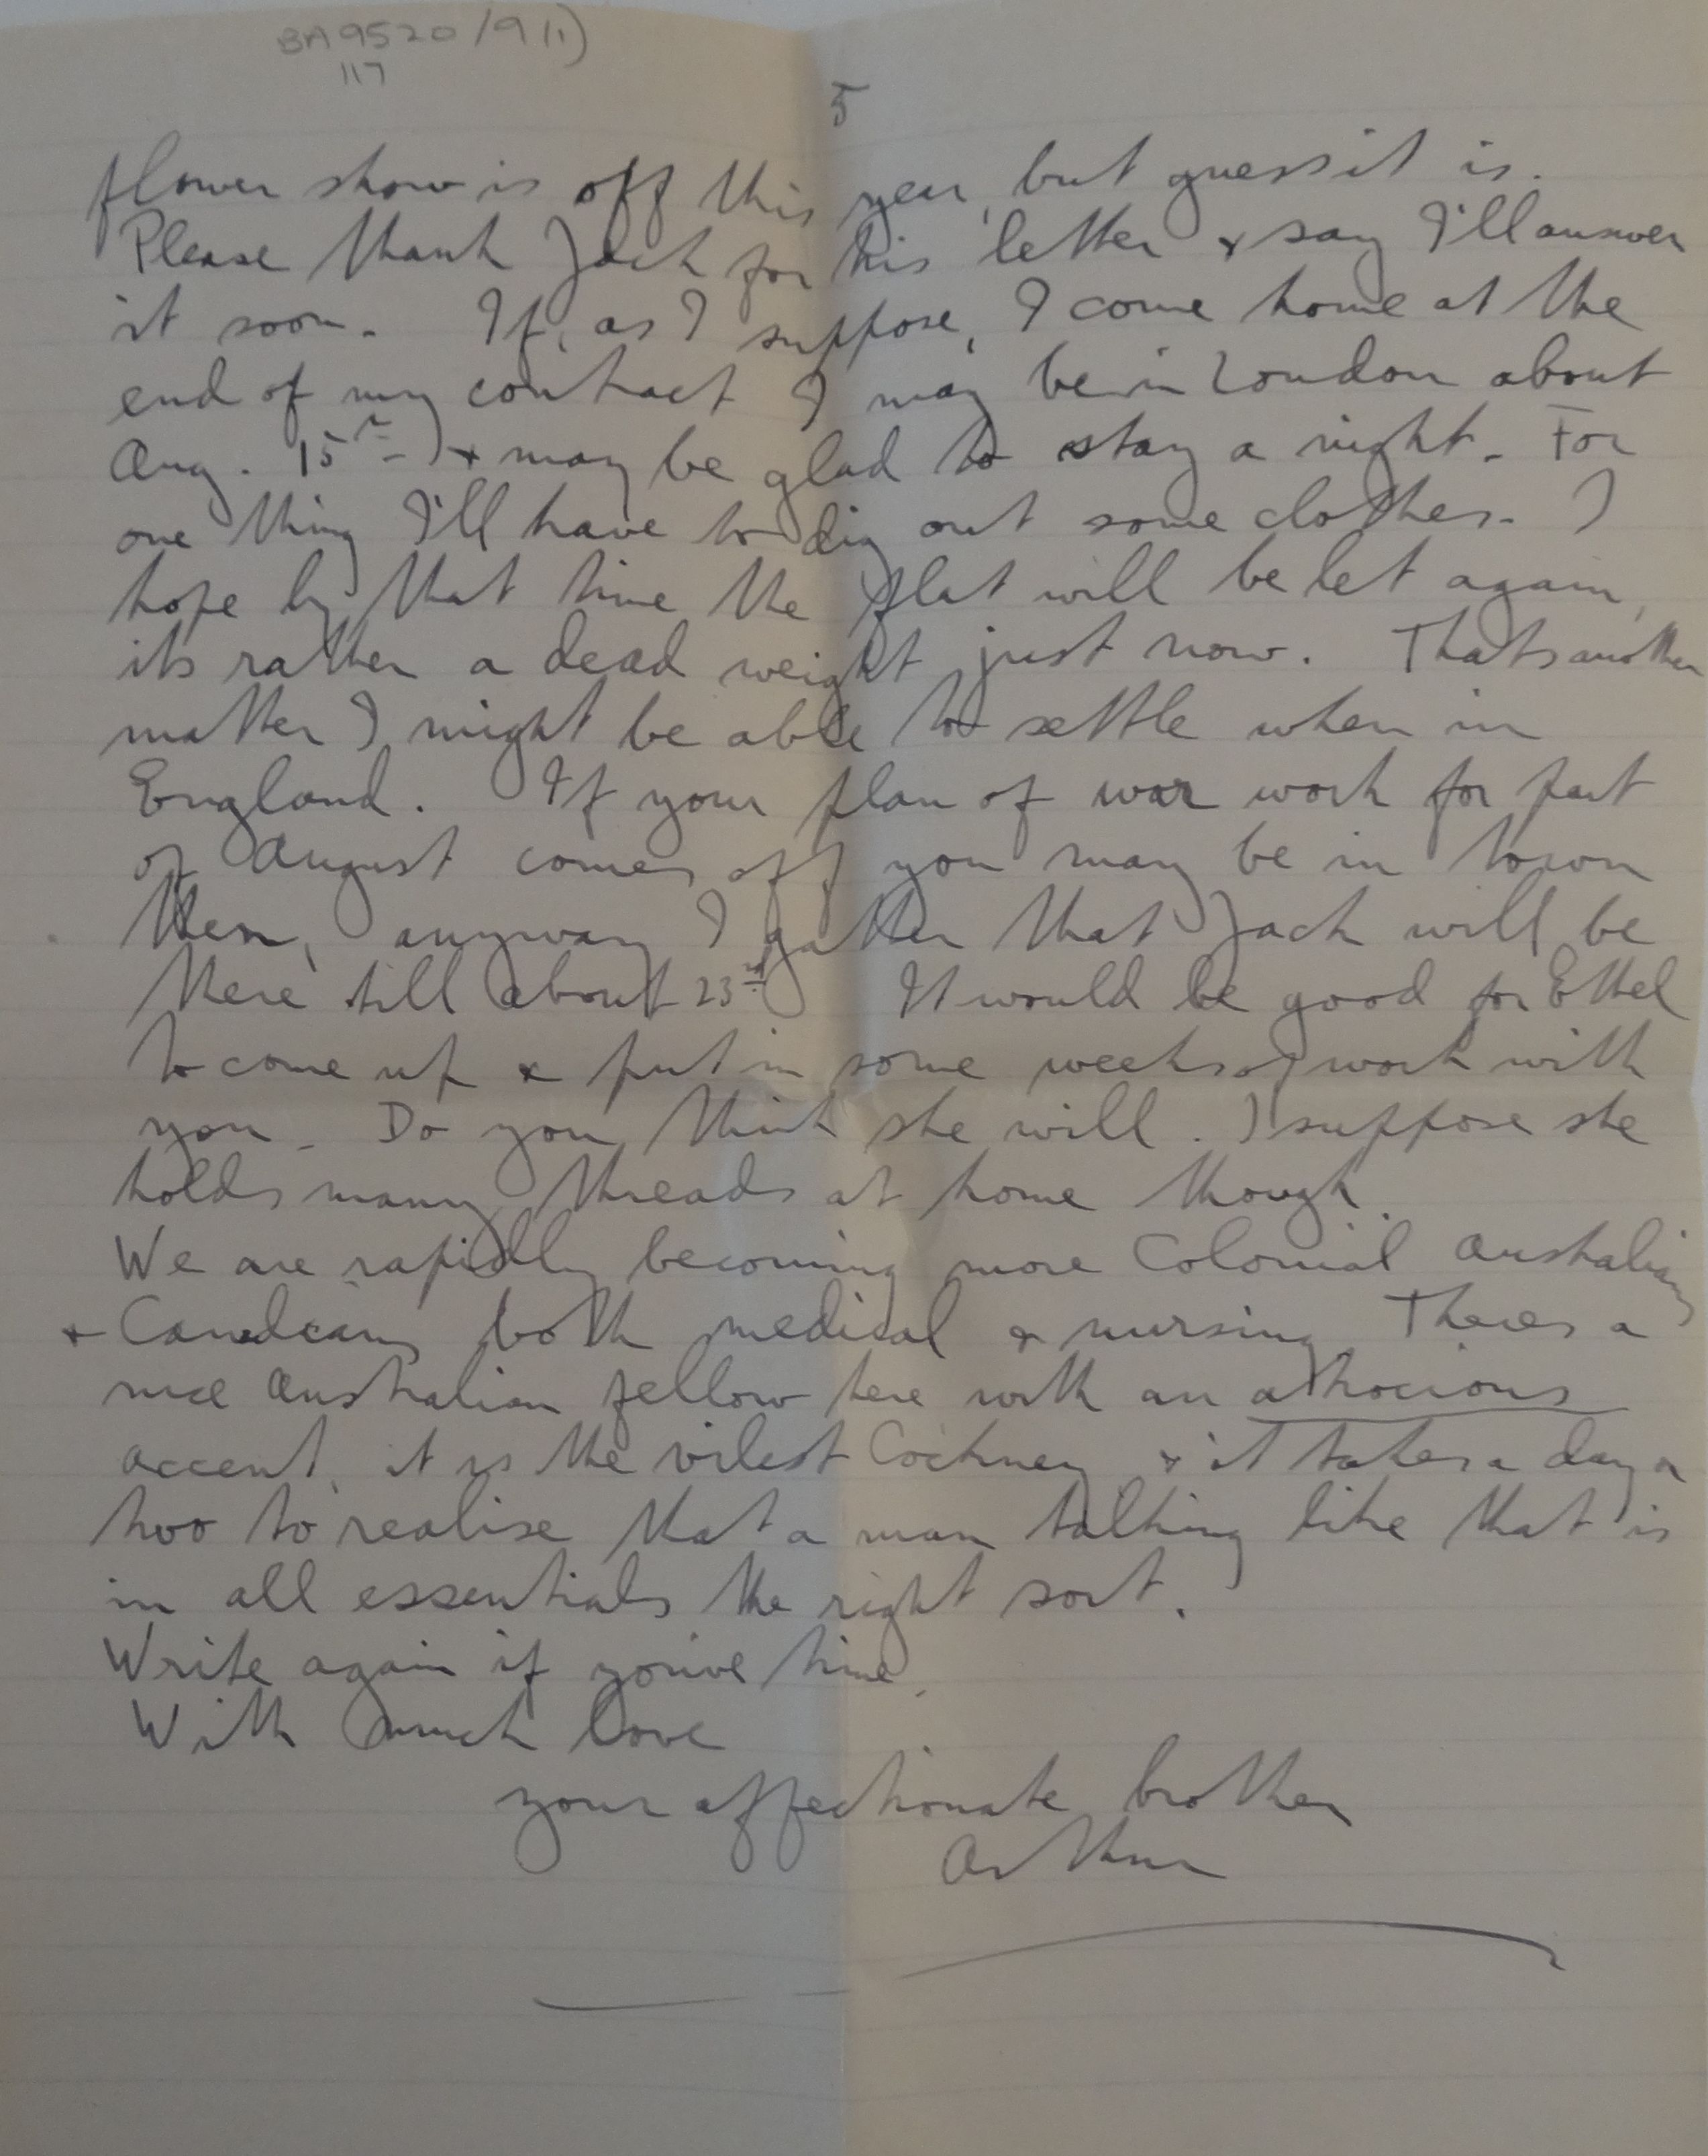 BA9520/9(1)
117
5
flower show is off this year, but guess it is.
Please thank Jack for his letter & say I'll answer
it soon. If, as I suppose, I come home at the
end of my contract I may be in London about
Aug. 15th & may be glad to stay a night. For
one thing I'll have to dig out some clothes. I
hope by that time the flat will be let again,
its rather a dead weight just now. Thats another
matter I might be able to settle when in
England. If your plan of war work for part
of August comes off you may be in town
then, anyway I gather that Jack will be
there till about 23rd It would be good for Ethel
to come up & put in some weeks of work with
you. Do you think she will. I suppose she
holds many threads at home though.
We are rapidly becoming more Colonial Australians
& Canadians both medical & nursing Theres a
nice Australian fellow here with an atrocious
accent, it is the vilest Cockney & it takes a day or
two to realise that a man talking like that is
in all essentials the right sort.
Write again if youve time.
With much love
your affectionate brother
Arthur